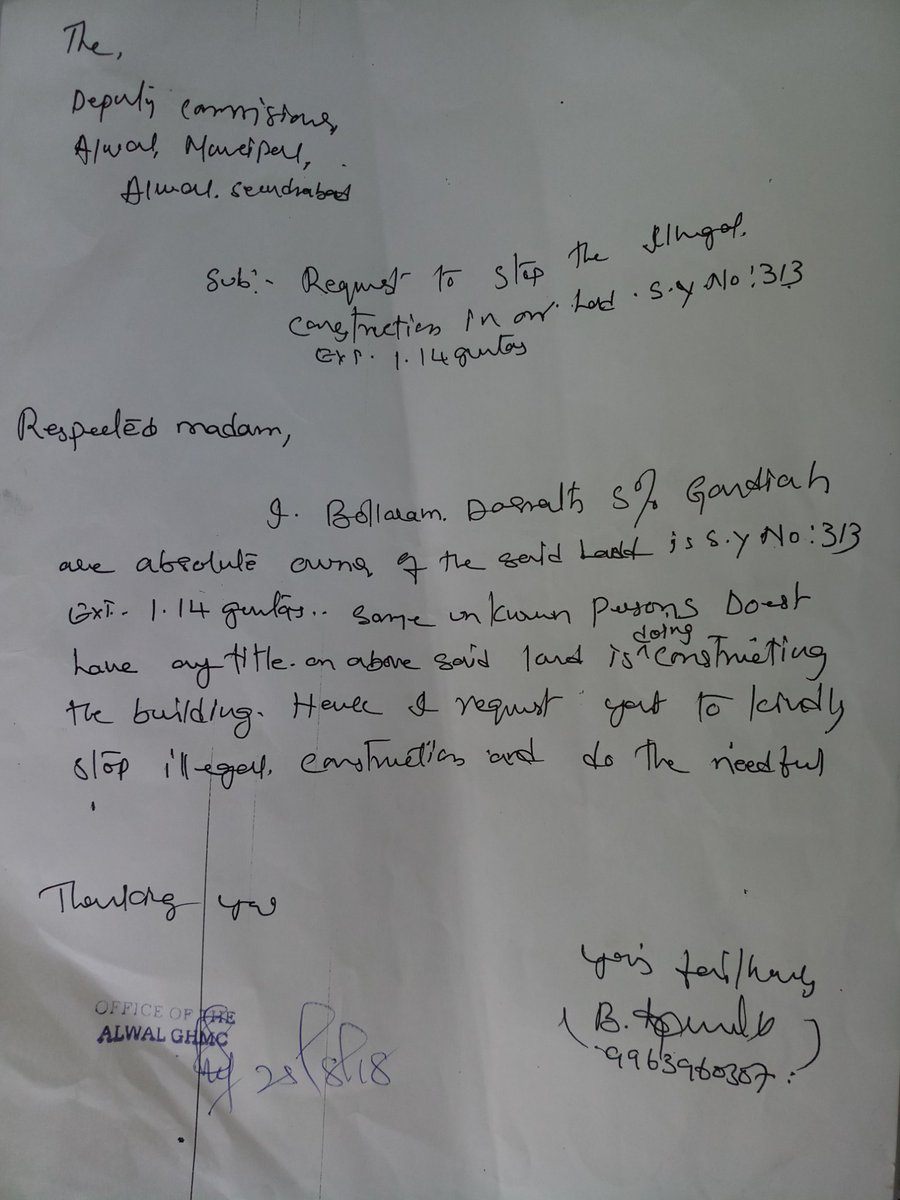 The,
Deputy commisiones,
Alwal, Muncipal,
Alwal. Secundrabad
Sub:- Request to stop the illegal.
construction in our Land. S.y No: 313
Ext. 1.14 guntas
Respected madam,
I. Bollaram. Dasrath S/o Gandiah
are absolute owner of the said Land is S.y No: 313
Ext. 1.14 guntas.. Some unknown persons Doest
have any title. on above said land is doing constructing
the building. Hence I request you to kindly
stop illegal. construction and do the needful
Thanking you
yours faithfully
(B. )
9963960307.
OFFICE OF THE
ALWAL GHMC
28/8/18